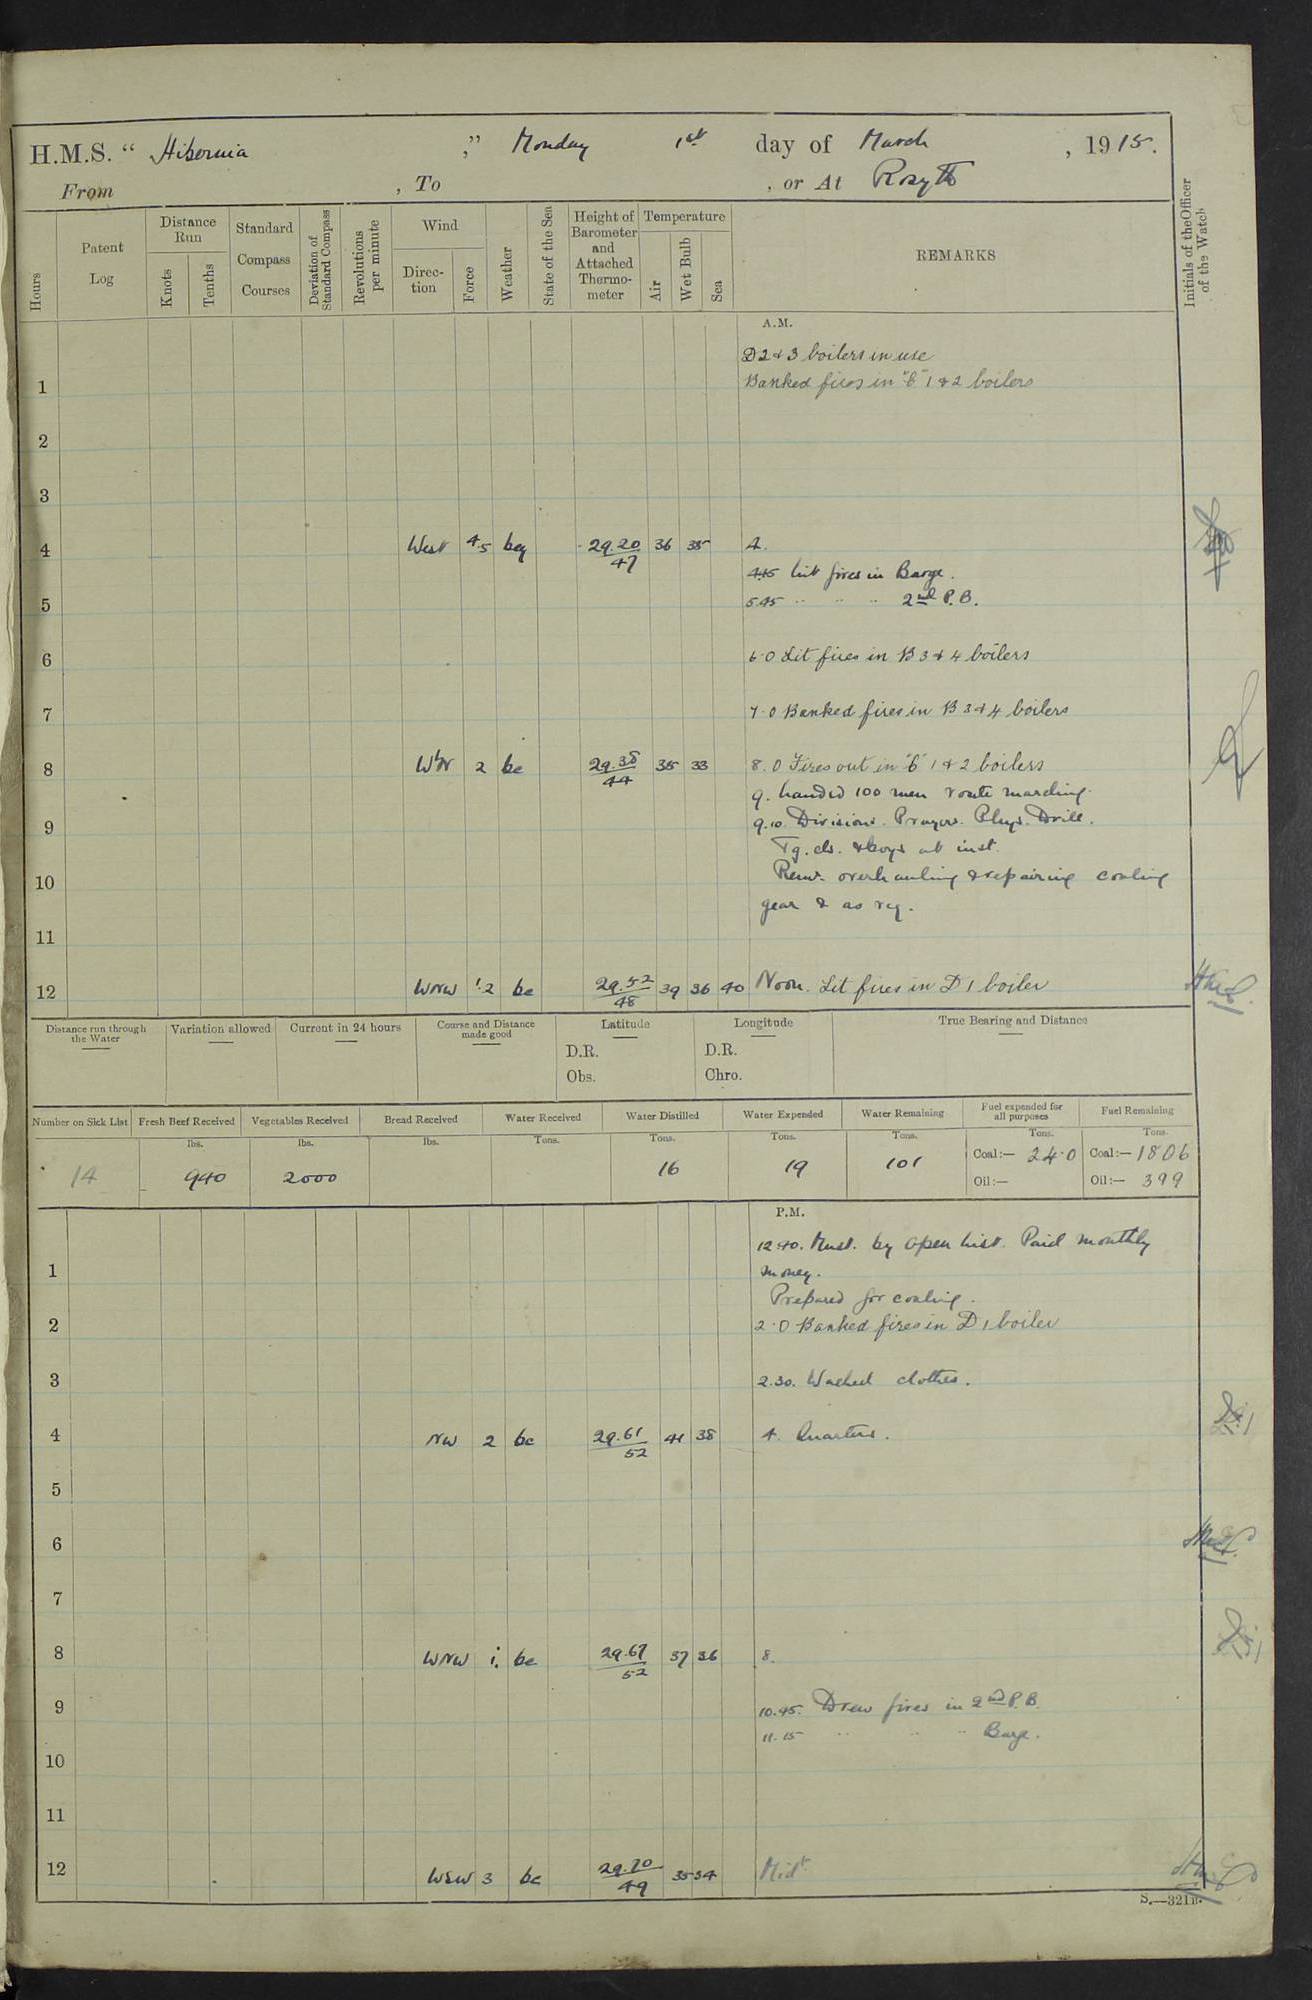 H.M.S. “ Hibernia ,” Monday 1st day of March , 1915.
From , To , or At Rosyth
Hours
Patent Log
Distance Run
Knots Tenths
Standard Compass Courses
Deviation of Standard Compass
Revolutions per minute
Wind
Direction Force
Weather
State of the Sea
Height of Barometer and Attached Thermometer
Temperature
Air Wet Bulb Sea
REMARKS
Initials of the Officer of the Watch
A.M.
D 2 & 3 boilers in use
1 Banked fires in "C" 1 & 2 boilers
2
3
4 West 4.5 bcq 29.20/47 36 35 4.
4.45 Lit fires in Barge.
5 5.45 " " " 2nd P.B.
6 6.0 Lit fires in B 3 & 4 boilers
7 7.0 Banked fires in B 3 & 4 boilers
8 WbN 2 bc 29.38/44 35 33 8.0 Fires out in "C" 1 & 2 boilers
9. Landed 100 men route marching.
9 9.10. Divisions. Prayers. Phys. Drill.
Tg. cls. & boys at inst.
10 Remr. overhauling & repairing coaling
gear & as req.
11
12 WNW 1.2 bc 29.52/48 39 36 40 Noon. Lit fires in D 1 boiler
Distance run through the Water
Variation allowed
Current in 24 hours
Course and Distance made good
Latitude
D.R.
Obs.
Longitude
D.R.
Chro.
True Bearing and Distance
Number on Sick List Fresh Beef Received Vegetables Received Bread Received Water Received Water Distilled Water Expended Water Remaining Fuel expended for all purposes Fuel Remaining
lbs. lbs. lbs. Tons. Tons. Tons. Tons. Tons. Tons.
14 940 2000 16 19 101 Coal:— 24.0 Coal:— 1806
Oil:— Oil:— 399
P.M.
12.40. Must. by Open List. Paid monthly
1 money.
Prepared for coaling.
2 2.0 Banked fires in D 1 boiler
3 2.30. Washed clothes.
4 NW 2 bc 29.61/52 41 38 4. Quarters.
5
6
7
8 WNW 1. bc 29.67/52 37 36 8.
9 10.45. Drew fires in 2nd P.B.
11.15 " " " Barge.
10
11
12 WSW 3 bc 29.70/49 35 34 Midt.
S.—321B.